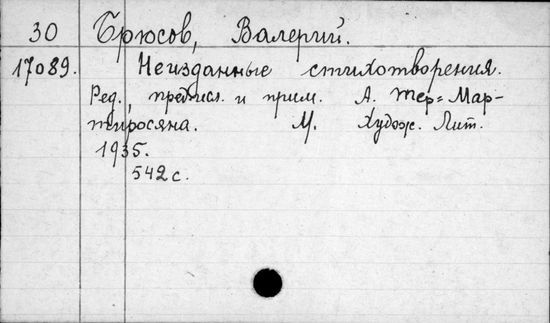 30 Брюсов, Валерий.
17089. Неизданные стихотворения.
Ред., предисл. и прим. А. Тер=Мар-
тиросяна. М. Худож. Лит.
1935.
542 с.